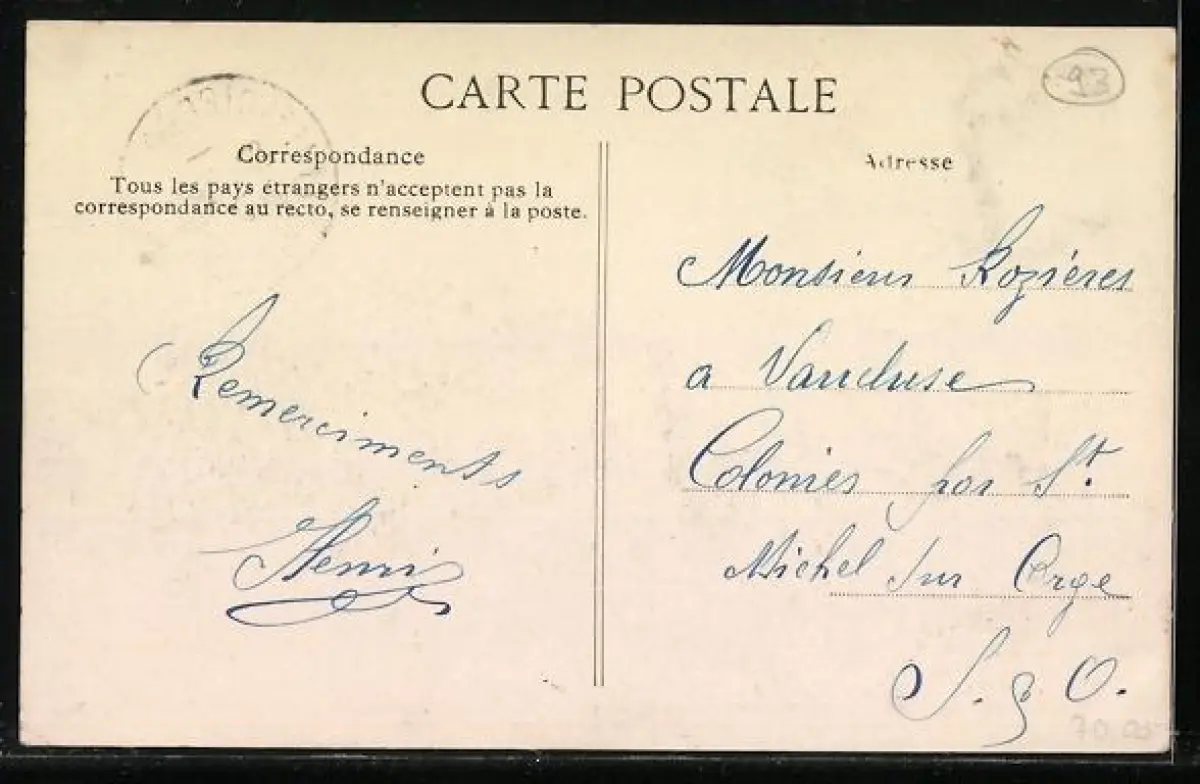 CARTE POSTALE
93
Correspondance
Tous les pays étrangers n'acceptent pas la
correspondance au recto, se renseigner à la poste.
Adresse
Remerciments
Henri
Monsieur Rozières
a Vaucluse
Colonies par St.
Michel sur Orge
S. & O.